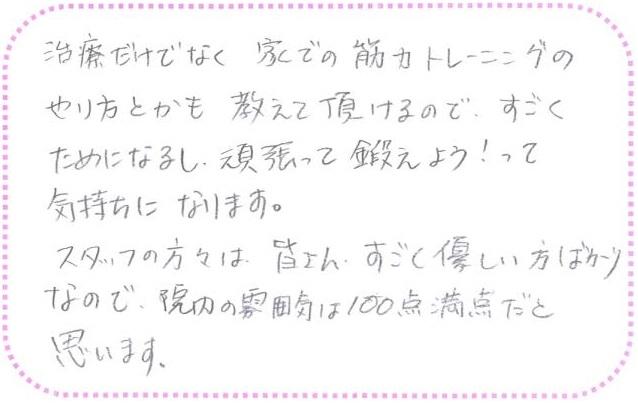 治療だけでなく 家での筋力トレーニングの
やり方とかも 教えて頂けるので、すごく
ためになるし、頑張って鍛えよう！って
気持ちに なります。
スタッフの方々は、皆さん、すごく優しい方ばかり
なので、院内の雰囲気は100点満点だと
思います。